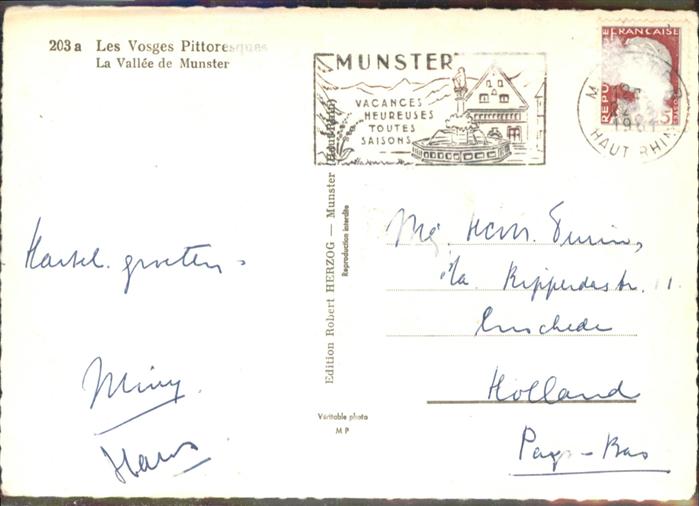 203 a Les Vosges Pittoresques
La Vallée de Munster
MUNSTER
VACANCES
HEUREUSES
TOUTES
SAISONS
FRANÇAISE
HAUT RHIN
Edition Robert HERZOG — Munster (Haut-Rhin)
Reproduction interdite
Véritable photo
M P
Hartel. groeten
Miny
Hans
Ripperdastr. 11
Enschede
Holland
Pays-Bas